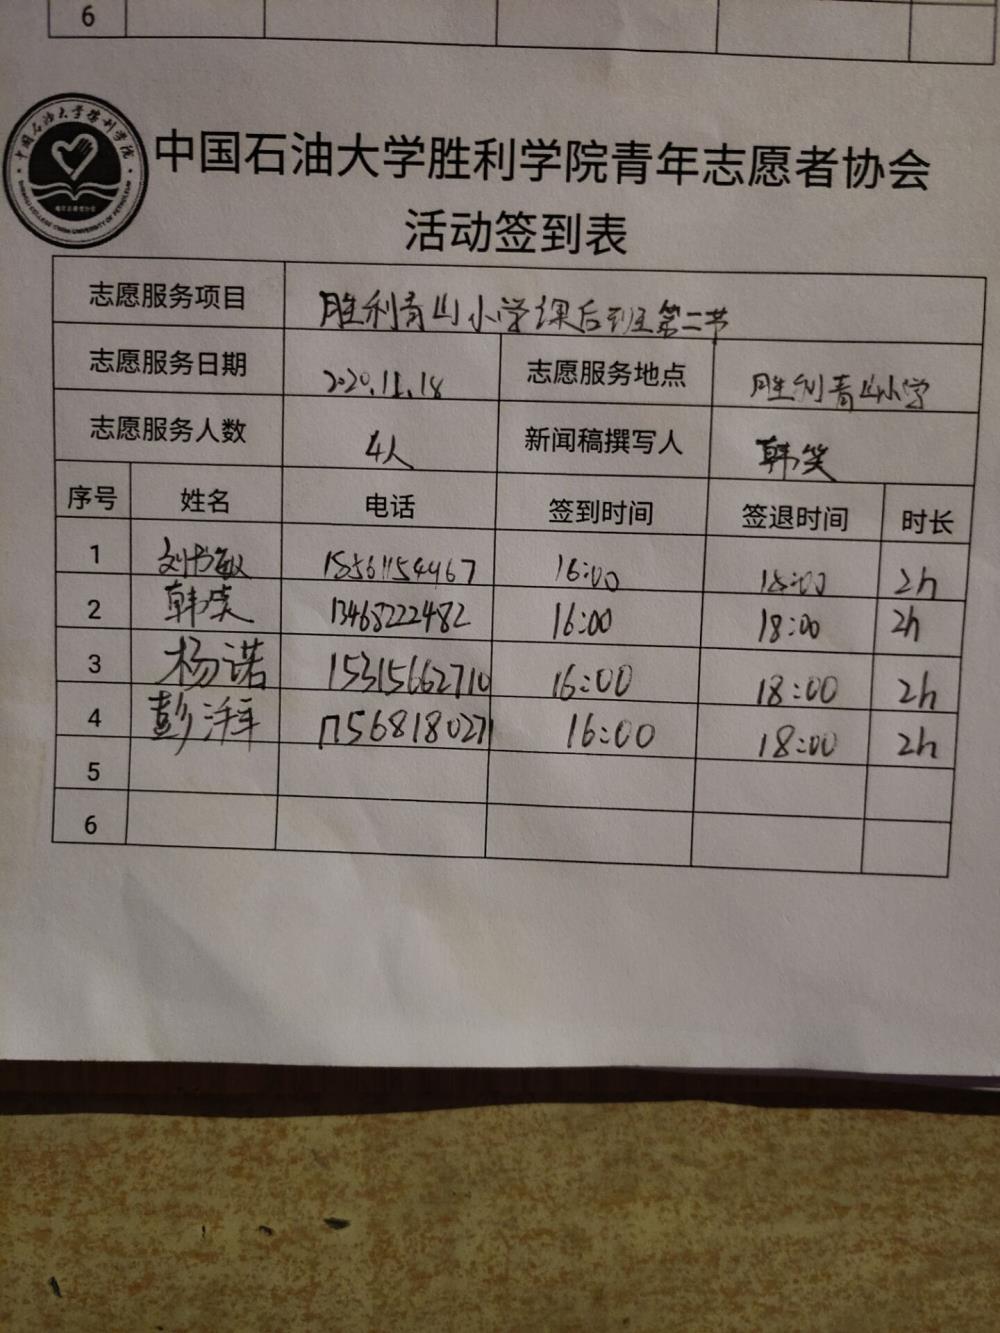 6
中国石油大学胜利学院
中国石油大学胜利学院青年志愿者协会
活动签到表
志愿服务项目 胜利青山小学课后班第二节
志愿服务日期 2020.11.18 志愿服务地点 胜利青山小学
志愿服务人数 4人 新闻稿撰写人 韩笑
序号 姓名 电话 签到时间 签退时间 时长
1 刘书敏 15561154467 16:00 18:00 2h
2 韩笑 13468222482 16:00 18:00 2h
3 杨诺 15315662710 16:00 18:00 2h
4 彭湃 17568180271 16:00 18:00 2h
5
6